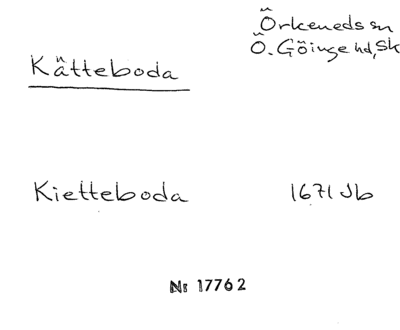 Örkeneds sn
Ö. Göinge hd, Sk
Kätteboda
Kietteboda 1671 Jb
Nr 17762